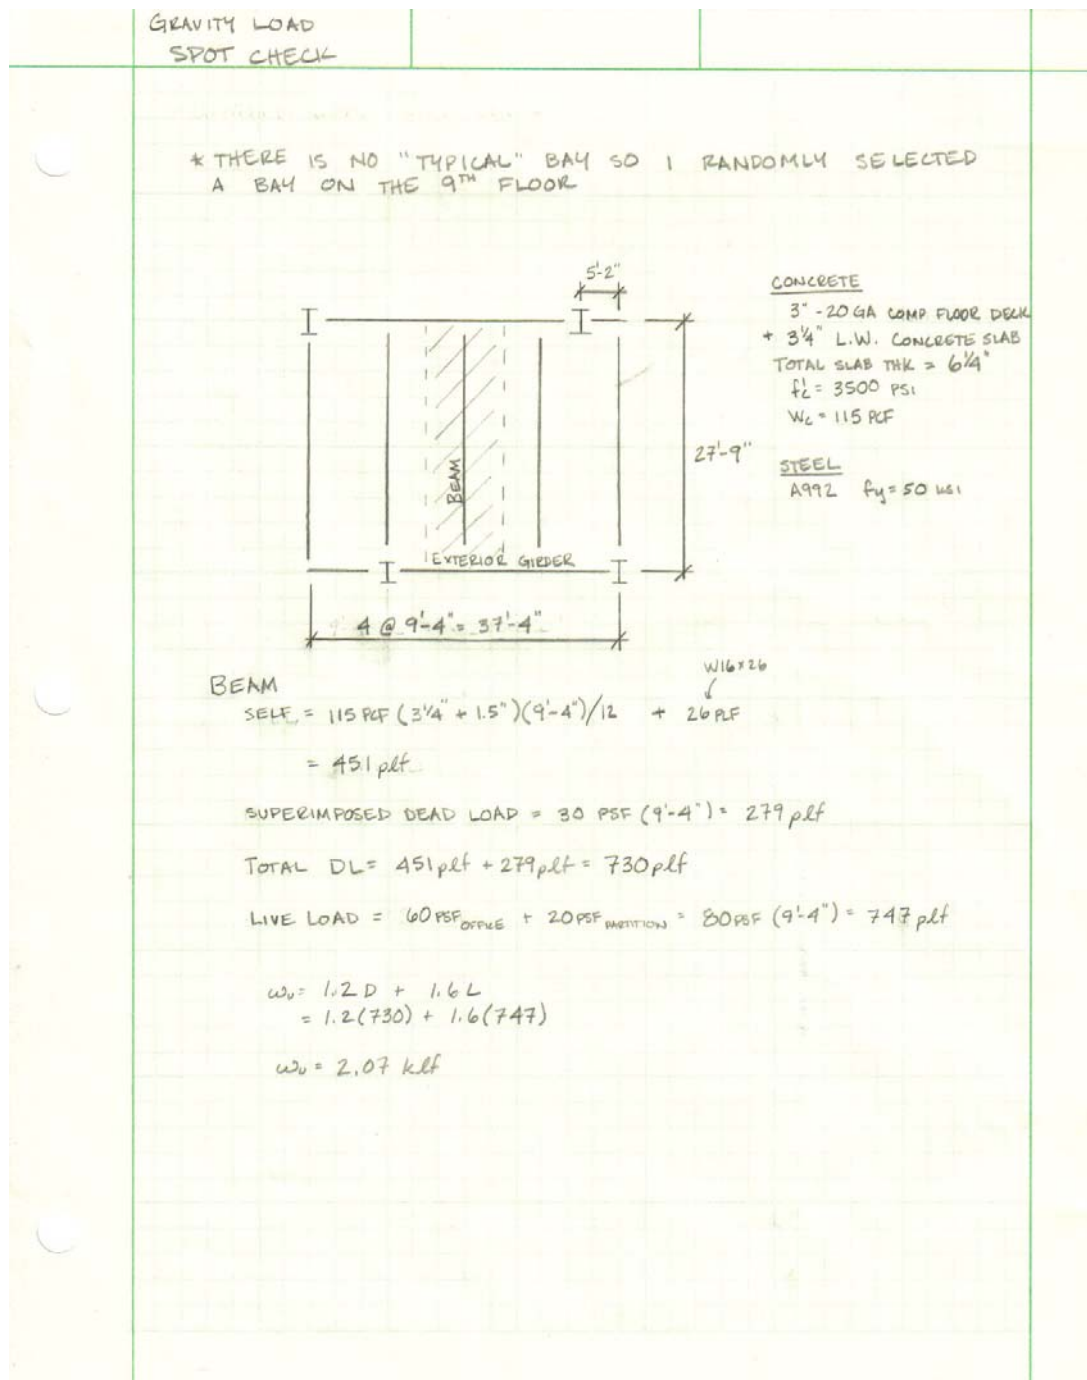 GRAVITY LOAD
SPOT CHECK
* THERE IS NO "TYPICAL" BAY SO I RANDOMLY SELECTED
A BAY ON THE 9TH FLOOR
5'-2"
CONCRETE
3" - 20 GA COMP FLOOR DECK
+ 3 1/4" L.W. CONCRETE SLAB
TOTAL SLAB THK = 6 1/4"
f'c = 3500 PSI
Wc = 115 PCF
27'-9"
STEEL
A992 fy = 50 KSI
BEAM
EXTERIOR GIRDER
4 @ 9'-4" = 37'-4"
W16x26
BEAM
SELF = 115 PCF (3 1/4" + 1.5")(9'-4")/12 + 26 PLF
= 451 plf
SUPERIMPOSED DEAD LOAD = 30 PSF (9'-4") = 279 plf
TOTAL DL = 451 plf + 279 plf = 730 plf
LIVE LOAD = 60 PSF OFFICE + 20 PSF PARTITION = 80 PSF (9'-4") = 747 plf
ωu = 1.2 D + 1.6 L
= 1.2(730) + 1.6(747)
ωu = 2.07 klf